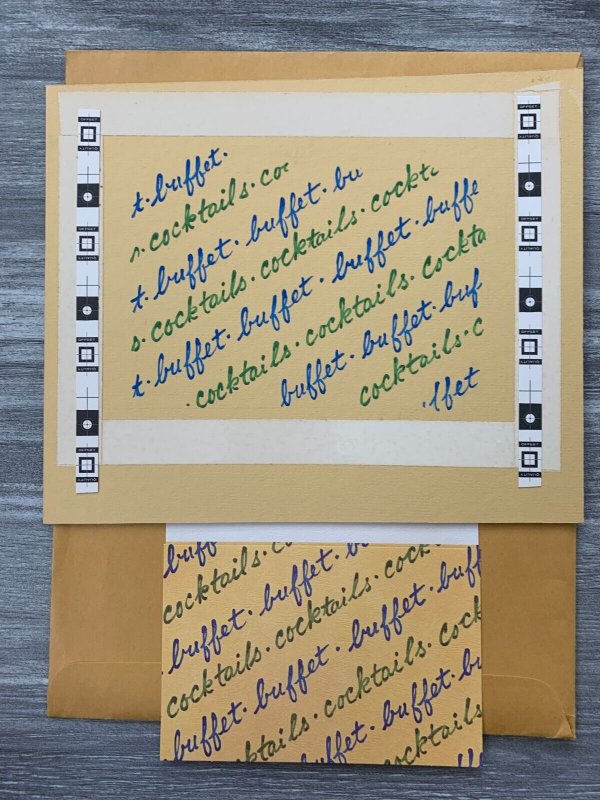 t. buffet.
s. cocktails. coc
t. buffet. buffet. bu
s. cocktails. cocktails. cockta
t. buffet. buffet. buffet. buffe
. cocktails. cocktails. cockta
buffet. buffet. buf
cocktails. c
. ffet
OFFSET
QUALITY
OFFSET
QUALITY
OFFSET
QUALITY
OFFSET
QUALITY
OFFSET
QUALITY
OFFSET
QUALITY
OFFSET
QUALITY
OFFSET
QUALITY
buff
cocktails. c
buffet. buffet. b
cocktails. cocktails. cock
buffet. buffet. buffet. buff
cktails. cocktails. cock
buffet. buffet. bu
ocktails